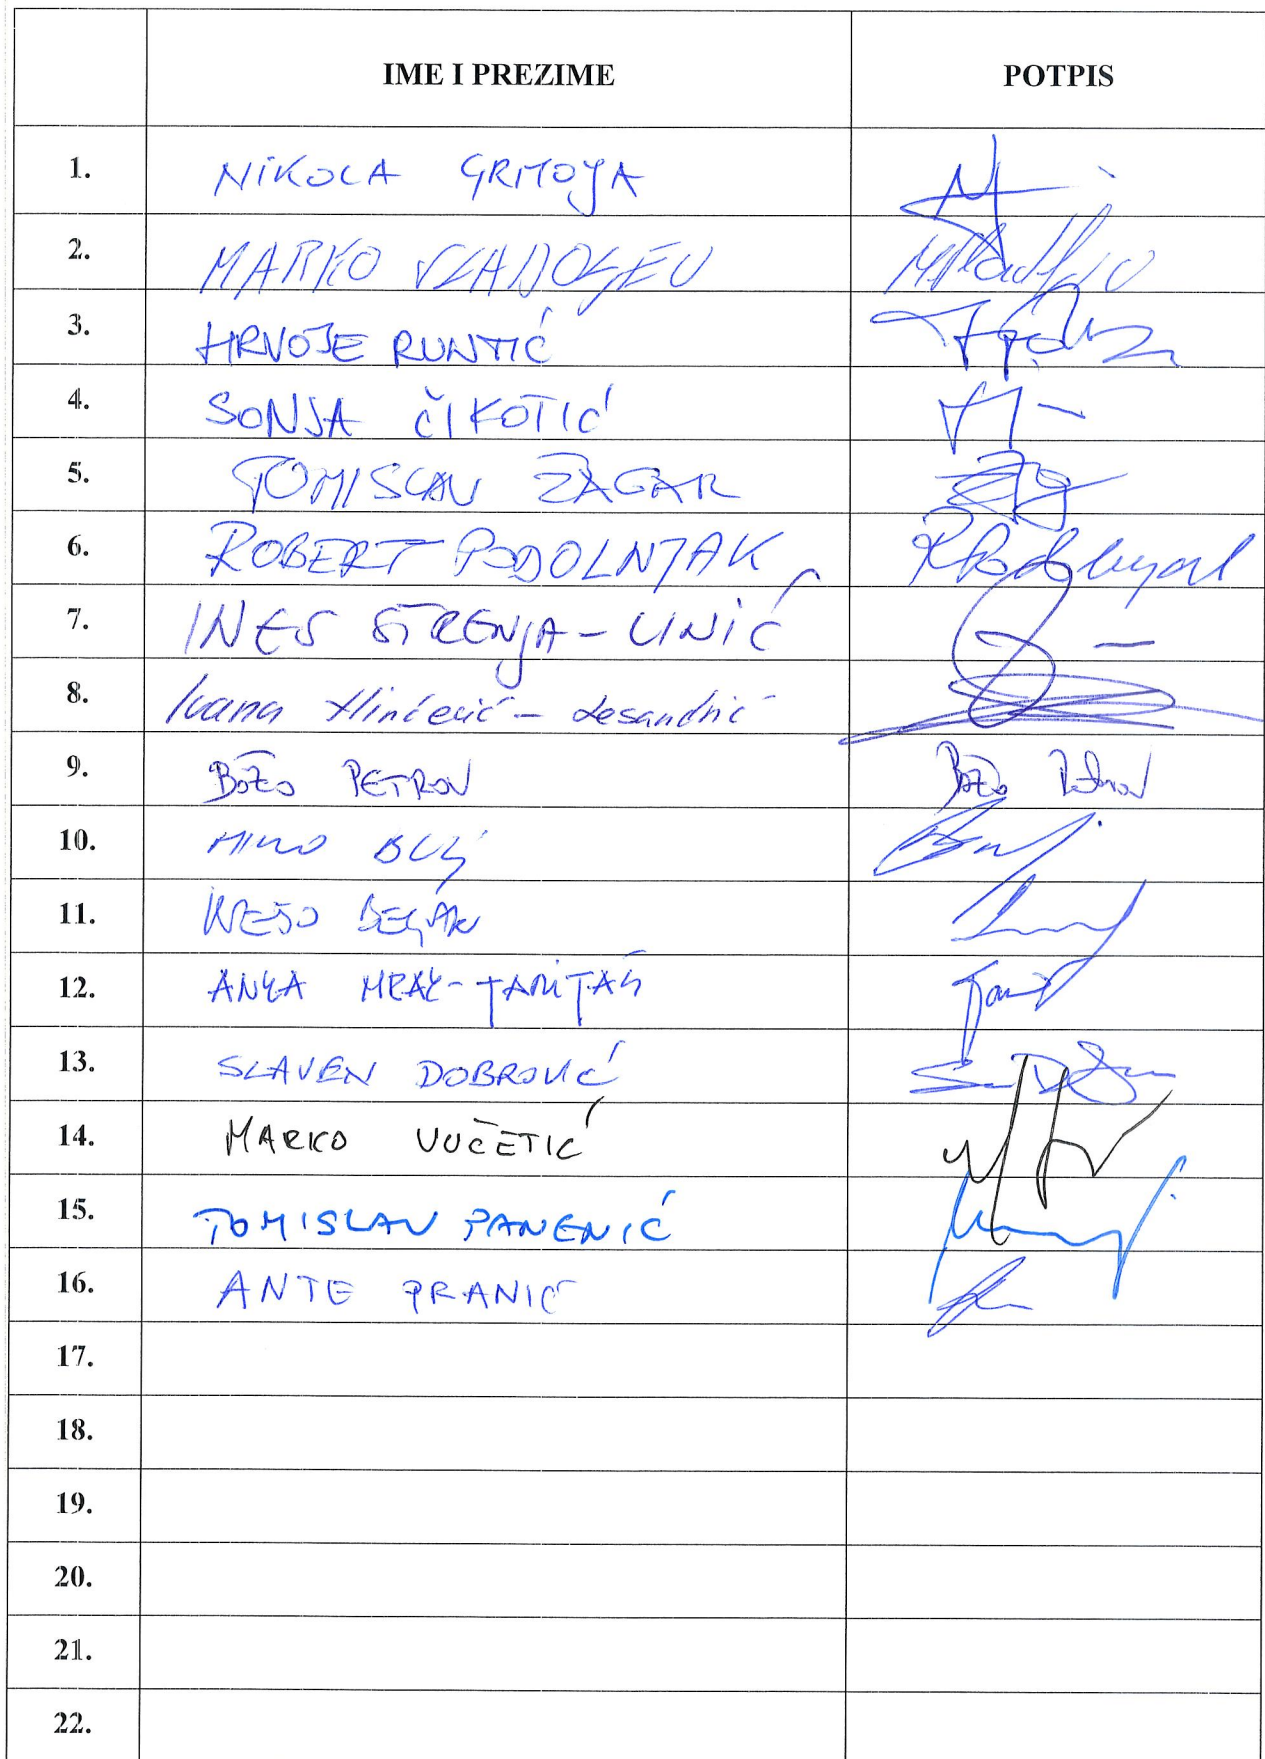 IME I PREZIME POTPIS
1. NIKOLA GRMOJA
2. MARKO VLADOLJEV
3. HRVOJE RUNTIĆ
4. SONJA ČIKOTIĆ
5. TOMISLAV ŽAGAR
6. ROBERT PODOLNJAK RPodolnjak
7. INES STRENJA-LINIĆ
8. Ivana Ninčević-Lesandrić
9. BOŽO PETROV Božo Petrov
10. MIRO BULJ
11. KREŠO BELJAK
12. ANKA MRAK-TARITAŠ
13. SLAVEN DOBROVIĆ
14. MARKO VUČETIĆ
15. TOMISLAV PANENIĆ
16. ANTE PRANIĆ
17.
18.
19.
20.
21.
22.